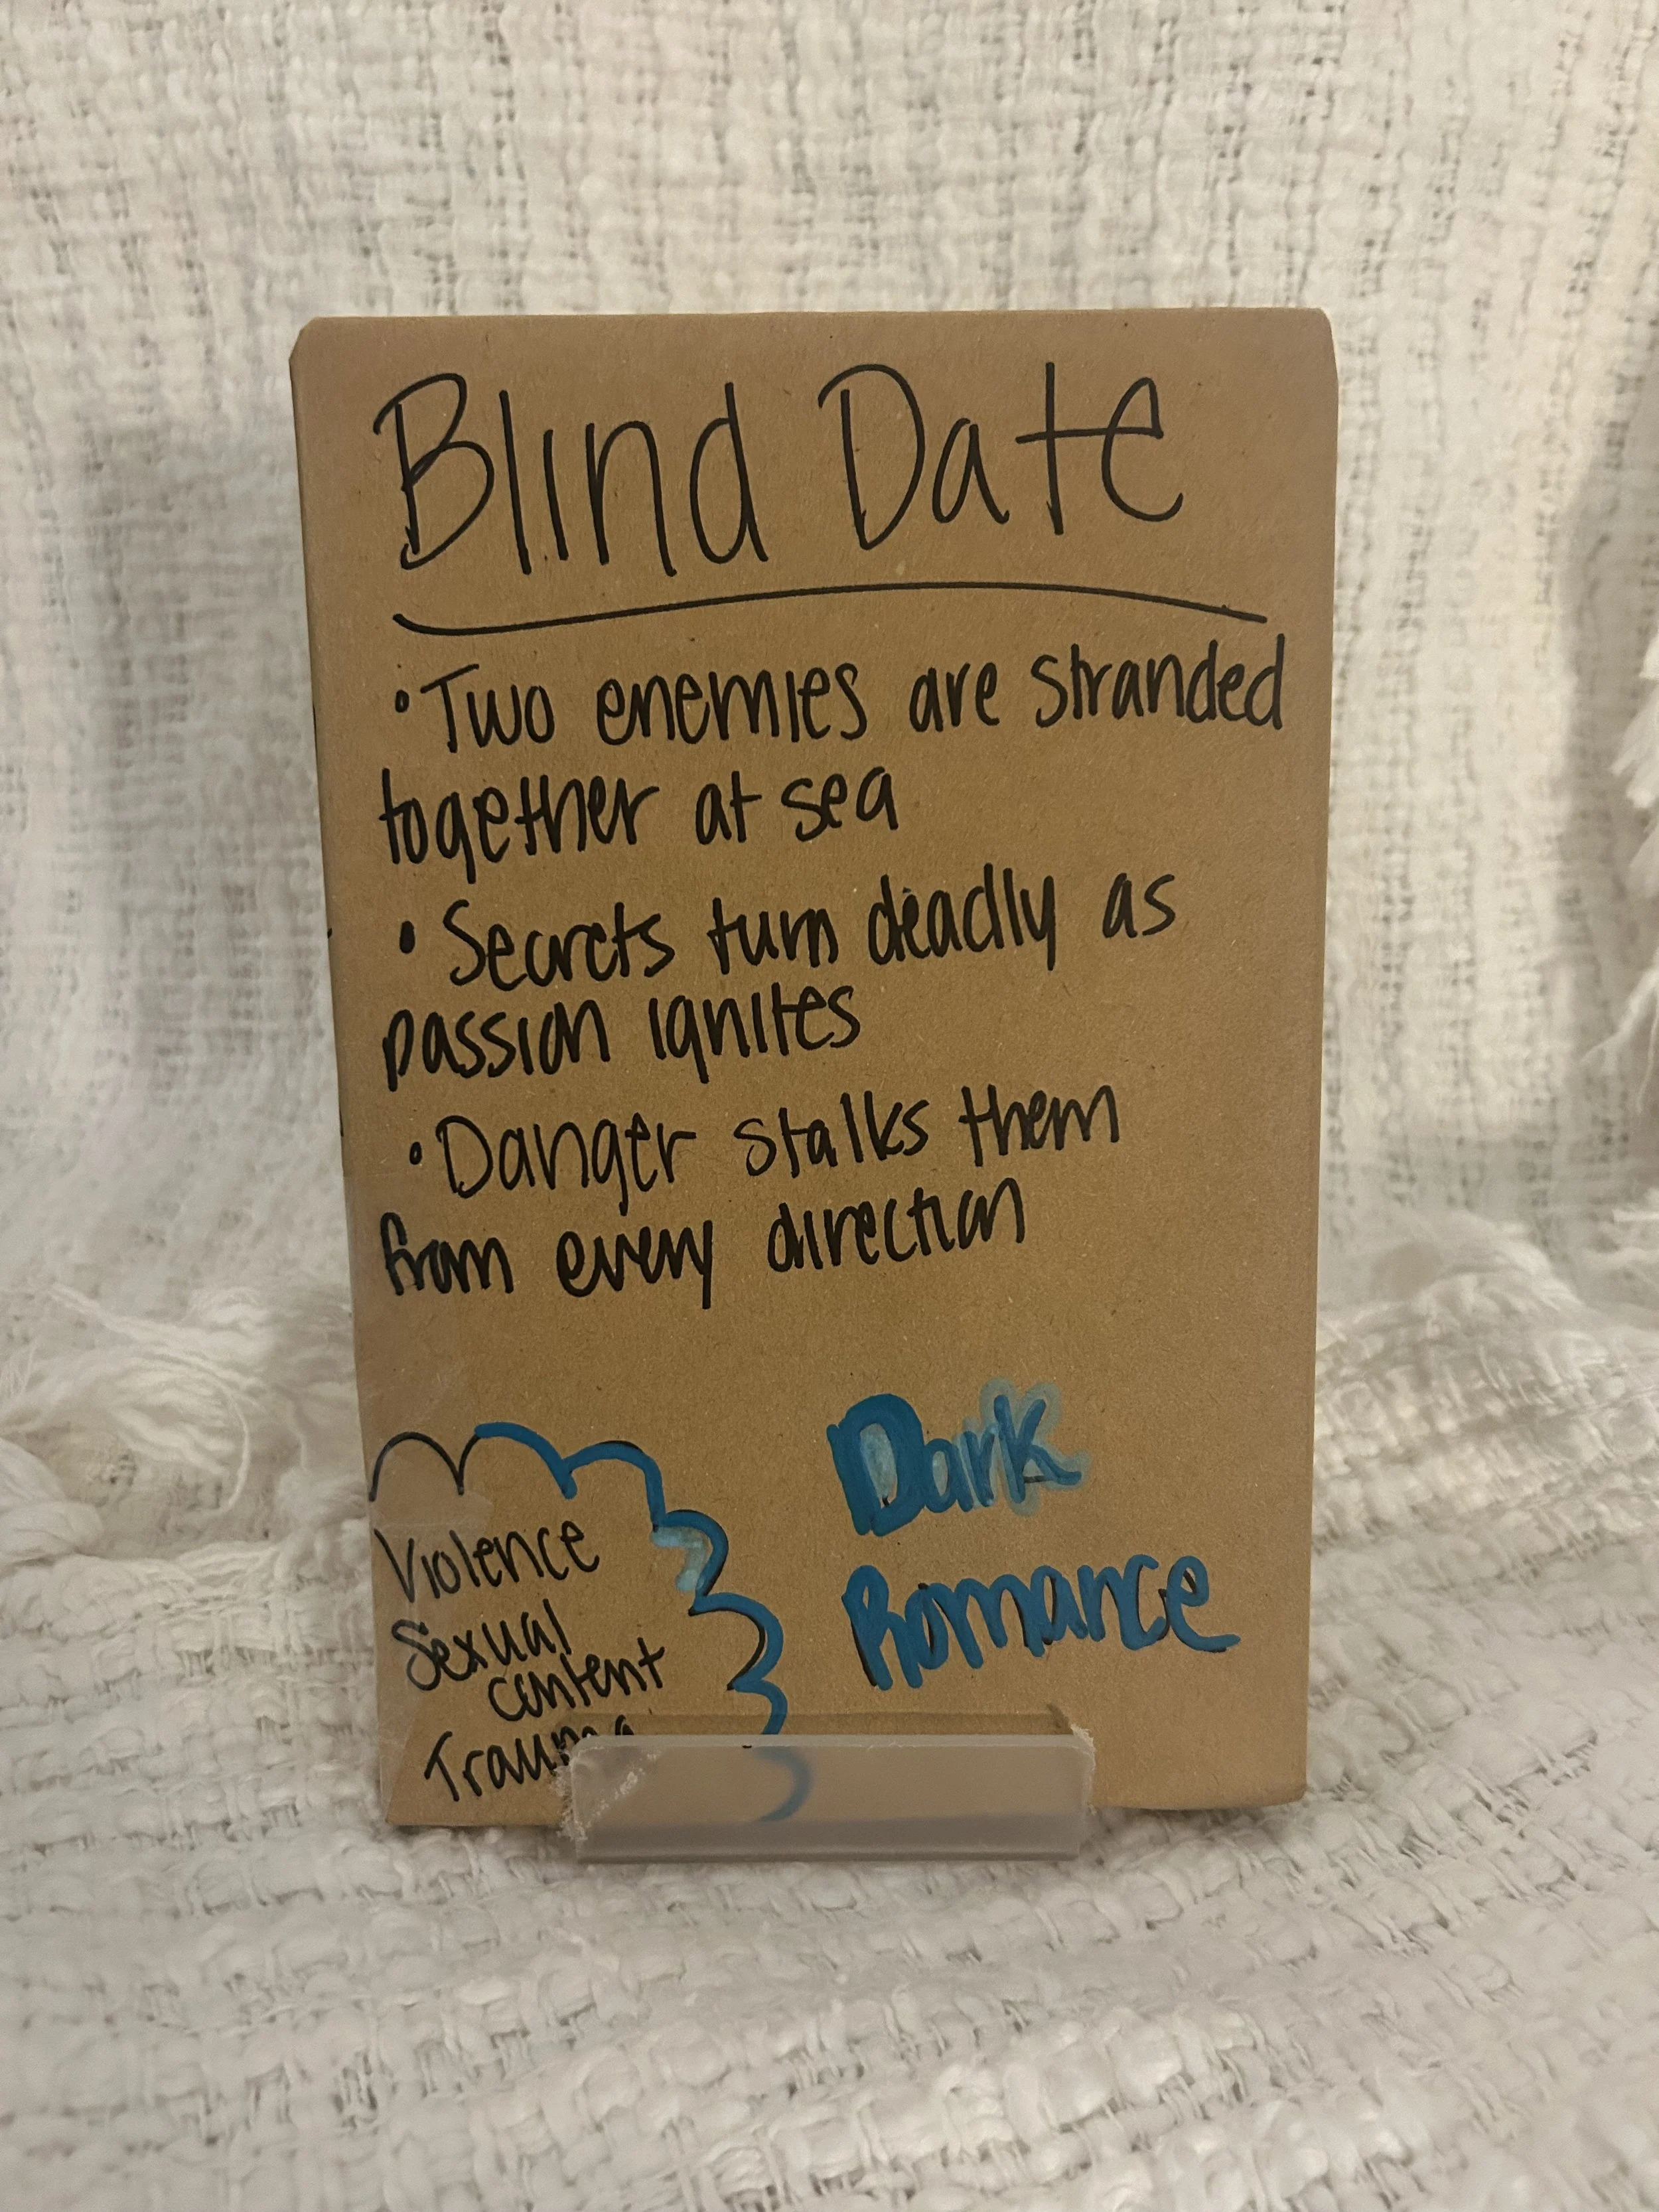 Blind Date
• Two enemies are stranded
together at sea
• Secrets turn deadly as
passion ignites
• Danger stalks them
from every direction
Dark
Romance
Violence
Sexual
content
Trauma